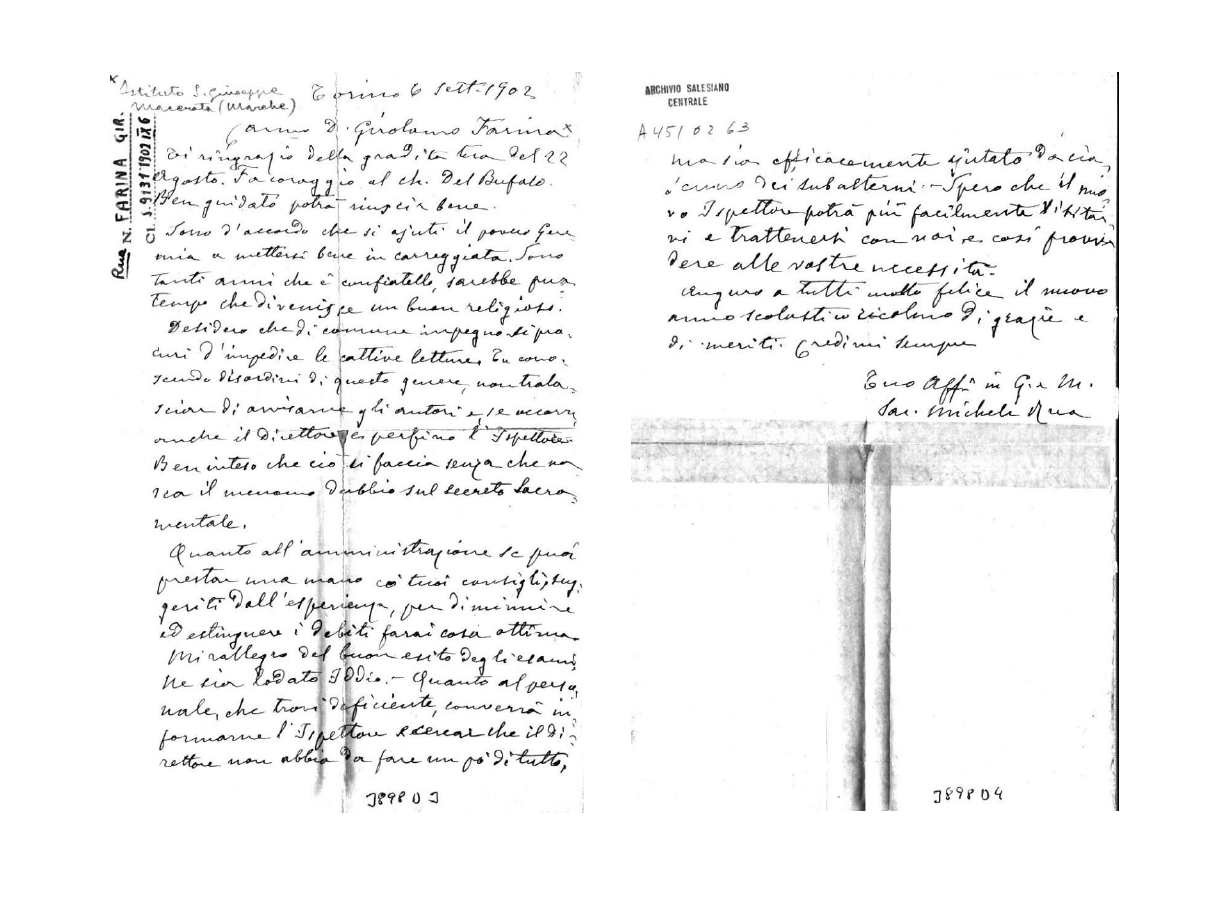 × Istituto S. Giuseppe
Macerata (Marche)
Torino 6 Sett. 1902
Rua N. FARINA GIR.
Cl. S. 9131 1902 IX 6
Carmo D. Girolamo Farina ×
Ti ringrazio della gradita tua del 22
Agosto. Fa coraggio al ch. Del Bufalo.
Ben guidato potrà riuscir bene.
Sono d'accordo che si ajuti il povero Gere
mia a mettersi bene in carreggiata. Sono
tanti anni che è confratello, sarebbe pur
tempo che divenisse un buon religioso.
Desidero che di comune impegno si pro-
curi d'impedire le cattive letture. Tu cono-
scendo disordini di questo genere, non trala-
sciar di avvisarne gli autori e, se occorre
anche il direttore e perfino l'Ispettore
Ben inteso che ciò si faccia senza che na
sca il menomo dubbio sul secreto Sacra-
mentale.
Quanto all'amministrazione se puoi
prestar una mano co' tuoi consigli, sug-
geriti dall'esperienza, per diminuire
ed estinguere i debiti farai cosa ottima.
Mi rallegro del buon esito degli esami,
Ne sia lodato Iddio. - Quanto al perso-
nale, che trovi deficiente, converrà in-
formarne l'Ispettore e cercar che il di-
rettore non abbia da fare un po' di tutto,
J898 D 3
ARCHIVIO SALESIANO
CENTRALE
A 451 02 63
ma sia efficacemente ajutato da cia-
scuno dei subalterni. - Spero che il nuo
vo Ispettore potrà più facilmente visitar
vi e trattenersi con voi e così provve
dere alle vostre necessità.
Auguro a tutti molto felice il nuovo
anno scolastico ricolmo di grazie e
di meriti. Credimi sempre
Tuo Aff. in G. e M.
Sac. Michele Rua
J898 D 4